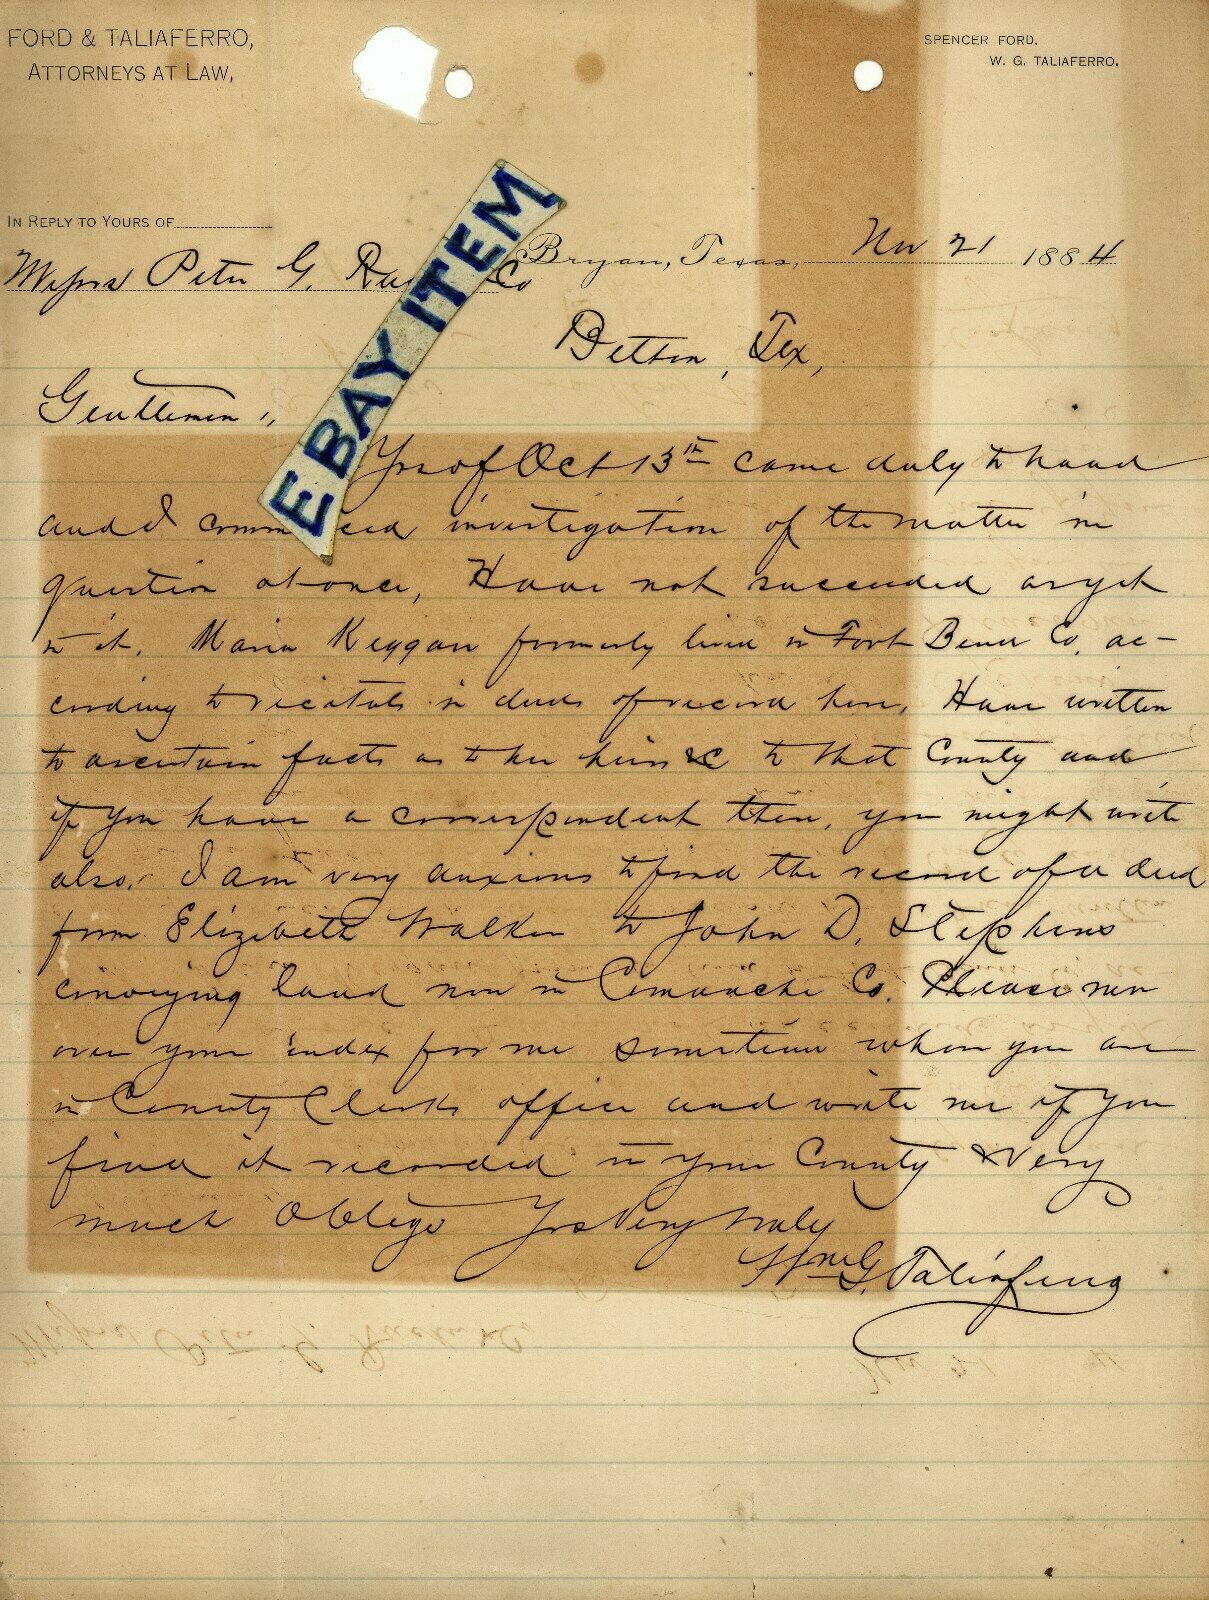 FORD & TALIAFERRO,
ATTORNEYS AT LAW,
SPENCER FORD.
W. G. TALIAFERRO.
IN REPLY TO YOURS OF
Bryan, Texas, Nov 21 1884
Messrs Peter G. Co
EBAY ITEM
Belton, Tex,
Gentlemen;,
Yrs of Oct 13th came duly to hand
and I comm ced investigation of the matter in
question at once, Have not succeeded as yet
in it. Maria Keggan formerly lived in Fort Bend Co, ac-
cording to recitals in deeds of record here, Have written
to ascertain facts as to her heirs &c to that County and
if you have a correspondent there, you might write
also. I am very anxious to find the record of a deed
from Elizabeth Walker to John D. Stephens
conveying land now in Comanche Co. Please run
over your index for me sometime when you are
in County Clerks office and write me if you
find it recorded in your County & Very
much Oblige Yrs Very truly
Wm G. Taliaferro